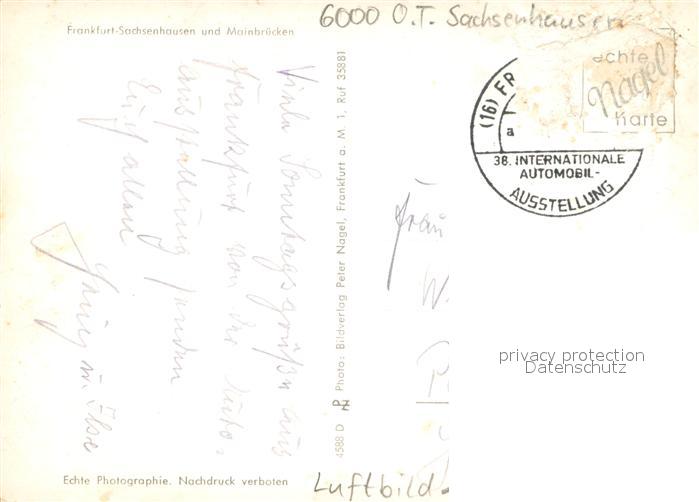 6000 O.T. Sachsenhausen
Frankfurt-Sachsenhausen und Mainbrücken
Viele Sonntagsgrüße aus
Frankfurt von der Auto-
ausstellung senden
Euch allen
u. Ilse
4588 D Photo: Bildverlag Peter Nagel, Frankfurt a. M. 1, Ruf 35881
Echte Photographie. Nachdruck verboten
Luftbild
echte
Nagel
Karte
(16) FR
a
38. INTERNATIONALE
AUTOMOBIL-
AUSSTELLUNG
Frau
W.
privacy protection
Datenschutz